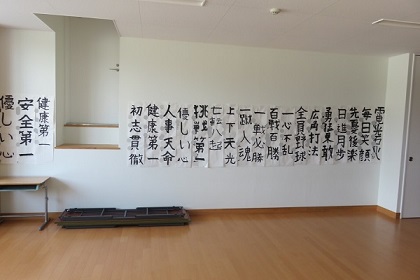 電光石火
毎日笑顔
先憂後楽
日進月歩
勇猛果敢
広角打法
全員野球
一心不乱
百戦百勝
一戦必勝
一蹴入魂
上下天光
七転八起
挑戦第一
優しい心
人事天命
健康第一
初志貫徹
健康第一
安全第一
優しい心